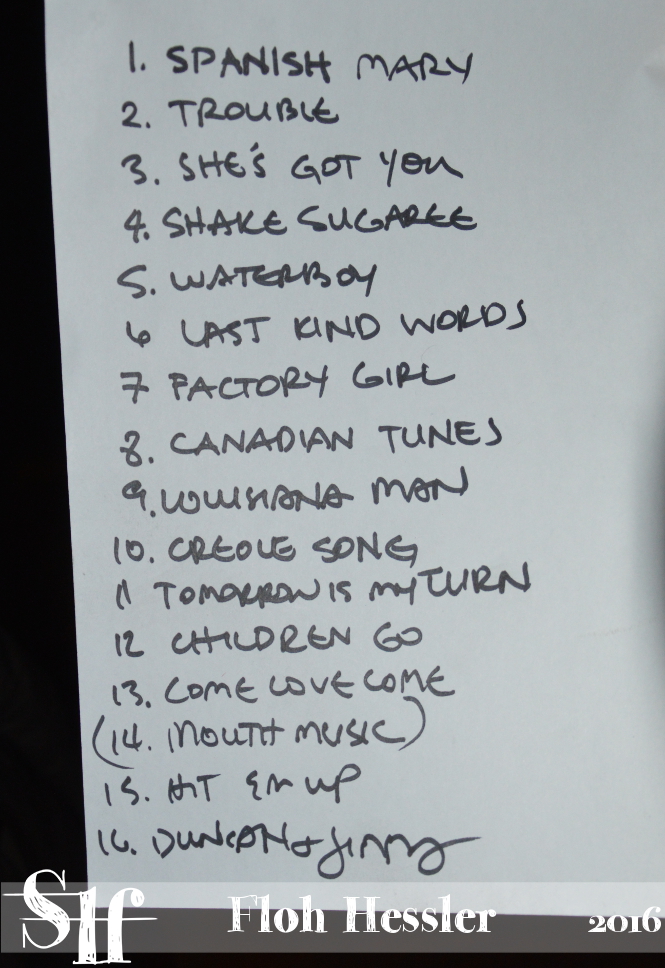 1. SPANISH MARY
2. TROUBLE
3. SHE'S GOT YOU
4. SHAKE SUGAREE
5. WATERBOY
6 LAST KIND WORDS
7 FACTORY GIRL
8. CANADIAN TUNES
9. LOUISIANA MAN
10. CREOLE SONG
11 TOMORROW IS MY TURN
12 CHILDREN GO
13. COME LOVE COME
(14. MOUTH MUSIC)
15. HIT EM UP
16. DUNCAN + JIMMY
Slf Floh Hessler 2016